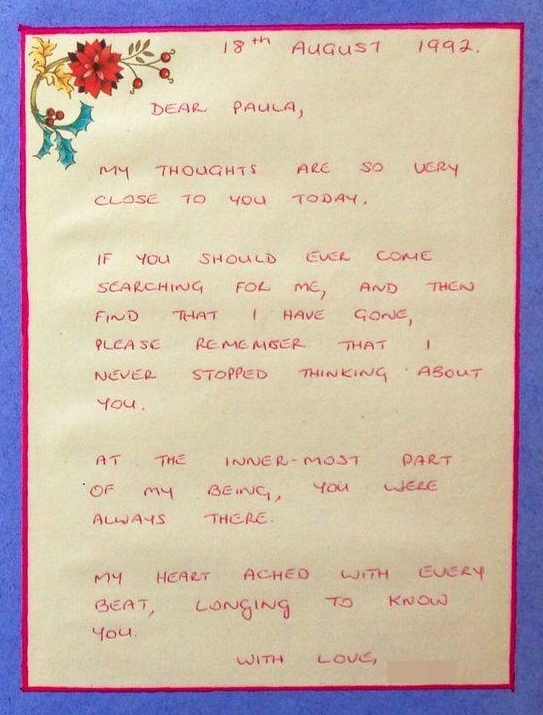 18th AUGUST 1992.
DEAR PAULA,
MY THOUGHTS ARE SO VERY
CLOSE TO YOU TODAY.
IF YOU SHOULD EVER COME
SEARCHING FOR ME, AND THEN
FIND THAT I HAVE GONE,
PLEASE REMEMBER THAT I
NEVER STOPPED THINKING ABOUT
YOU.
AT THE INNER-MOST PART
OF MY BEING, YOU WERE
ALWAYS THERE.
MY HEART ACHED WITH EVERY
BEAT, LONGING TO KNOW
YOU.
WITH LOVE,